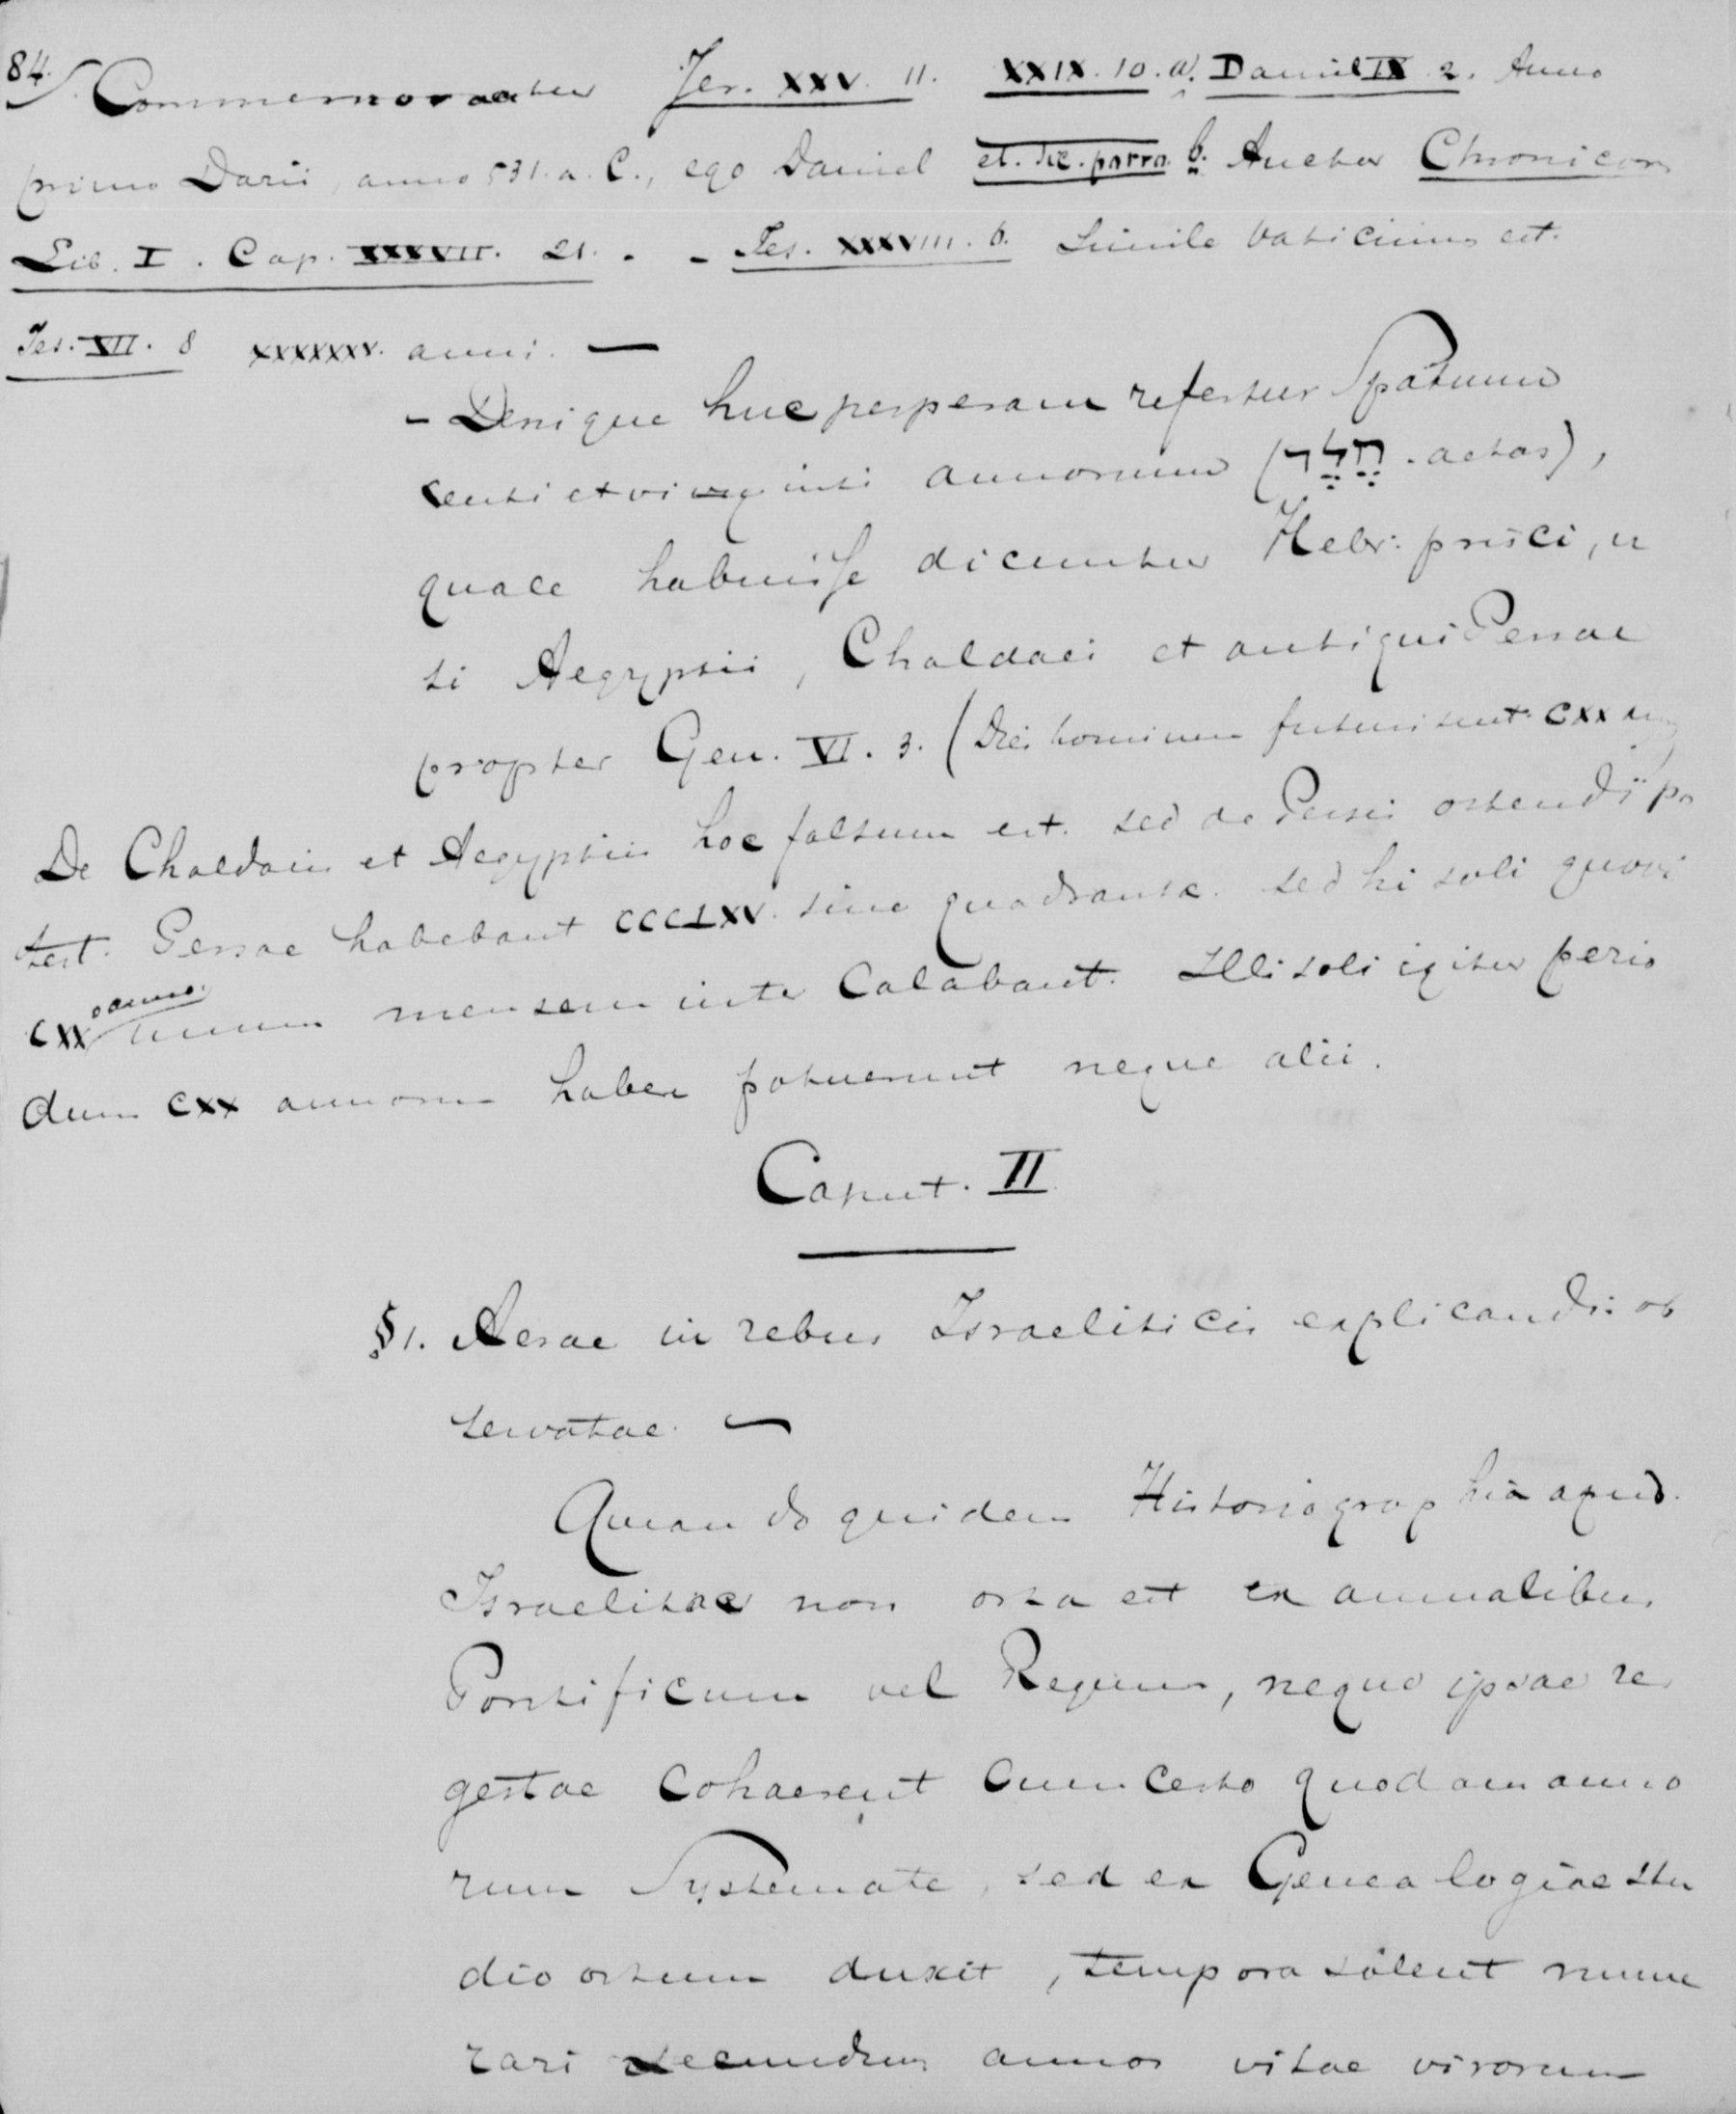 84.
Commemoratur Jer. XXV. 11. XXIX. 10. a. Daniel IX 2. Anno
primo Darii, anno 531. a. C., ego Daniel et. sic. porro. b. Auctor Chronicon
Lib. I. Cap. XXXVII. 21. . - Jes. XXXVIII. 6. Simile vaticinium est.
Jes. VII. 8 XXXXXXV. anni. —
- Denique huc perperam refertur Spatium
centi et viginti annorum (חֶלֶד. aetas),
quale habuisse dicuntur Hebr. prisci, u
ti Aegyptii, Chaldaei et antiqui Persae
propter Gen. VI. 3. (Dies hominum futuri sunt CXX
De Chaldaeis et Aegyptiis hoc falsum est. sed de Persis ostendi po
test. Persae habebant CCCLXV. sine quadrante. sed hi soli quovis
CXX o anno. unum mensem inter Calabant. Illi soli igitur perio
dum CXX annorum habere potuerunt neque alii.
Caput. II
§ 1. Aerae in rebus Israeliticis explicandis ob
servatae. —
Quando quidem Historiographia apud.
Israelitas non orta est ex annalibus
Pontificum vel Regum, neque ipsae res
gestae cohaerent cum certo quodam anno
rum Systemate, sed ex Genealogiae stu
dio ortum duxit, tempora solent nume
rari secundum annos vitae virorum